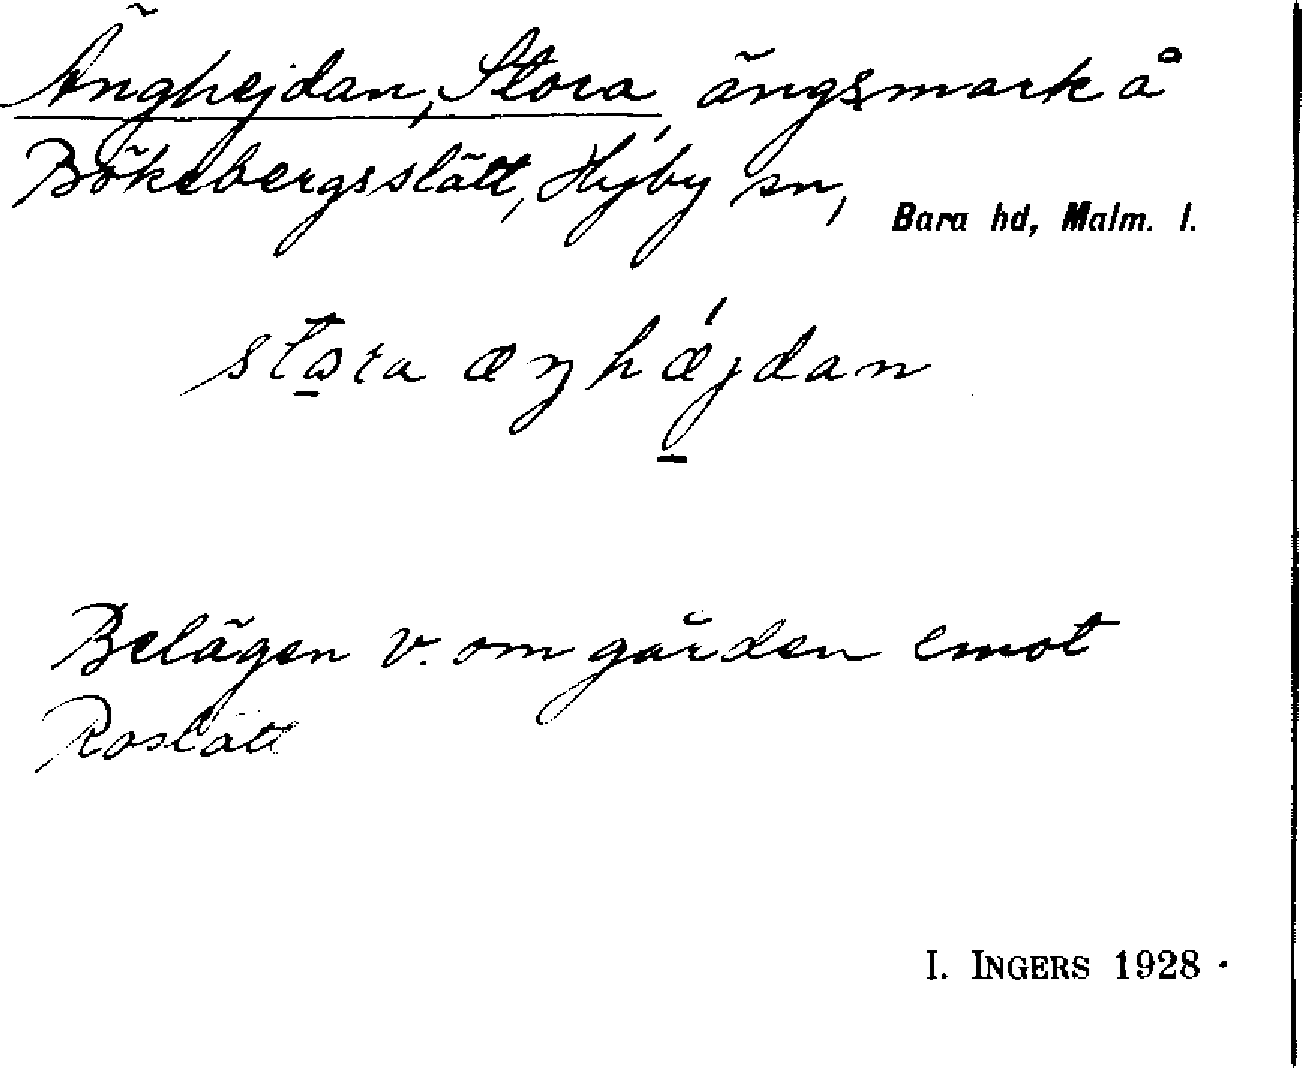 Änghejdan, Stora ängsmark å
Bökebergsslätt, Hyby sn,
Bara hd, Malm. l.
stora æŋhǽjdan
Belägen v. om gården emot
Roslätt
I. INGERS 1928